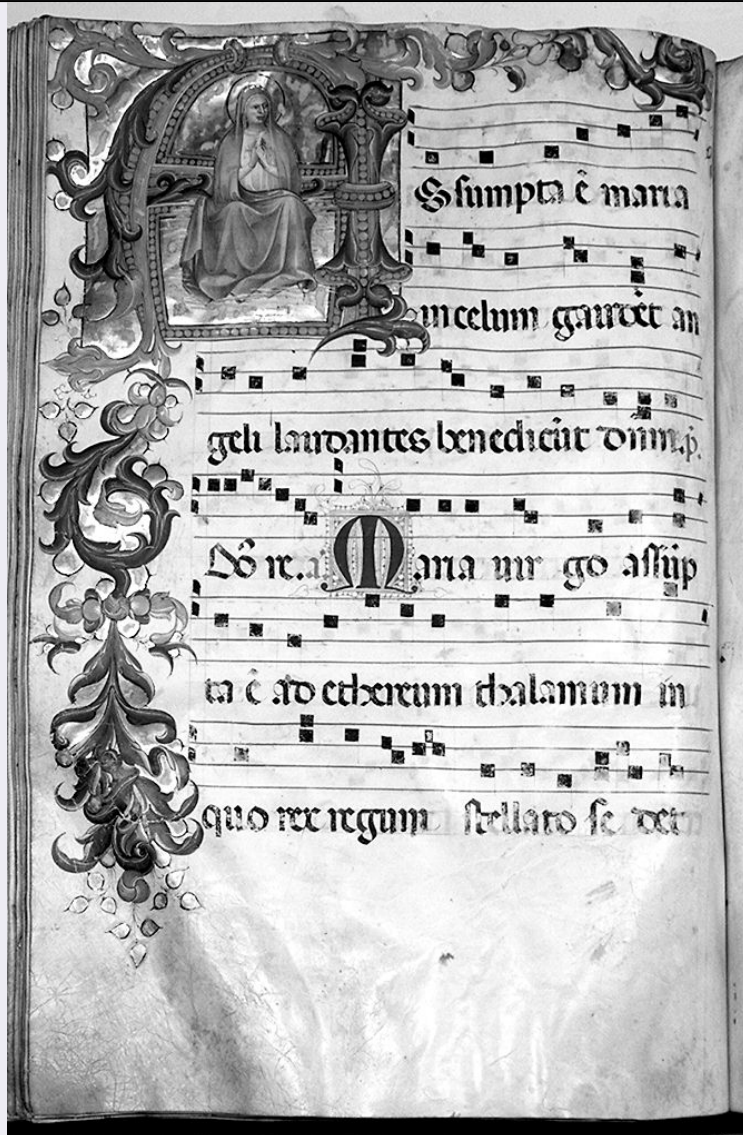 Assumpta ē maria
in celum gaudēt an
geli laudantes benedicūt dn̄m. p̄.
Dn̄s re. a. Maria vir go assūp
ta ē ad ethereum thalamum in
quo rex regum stellato se det